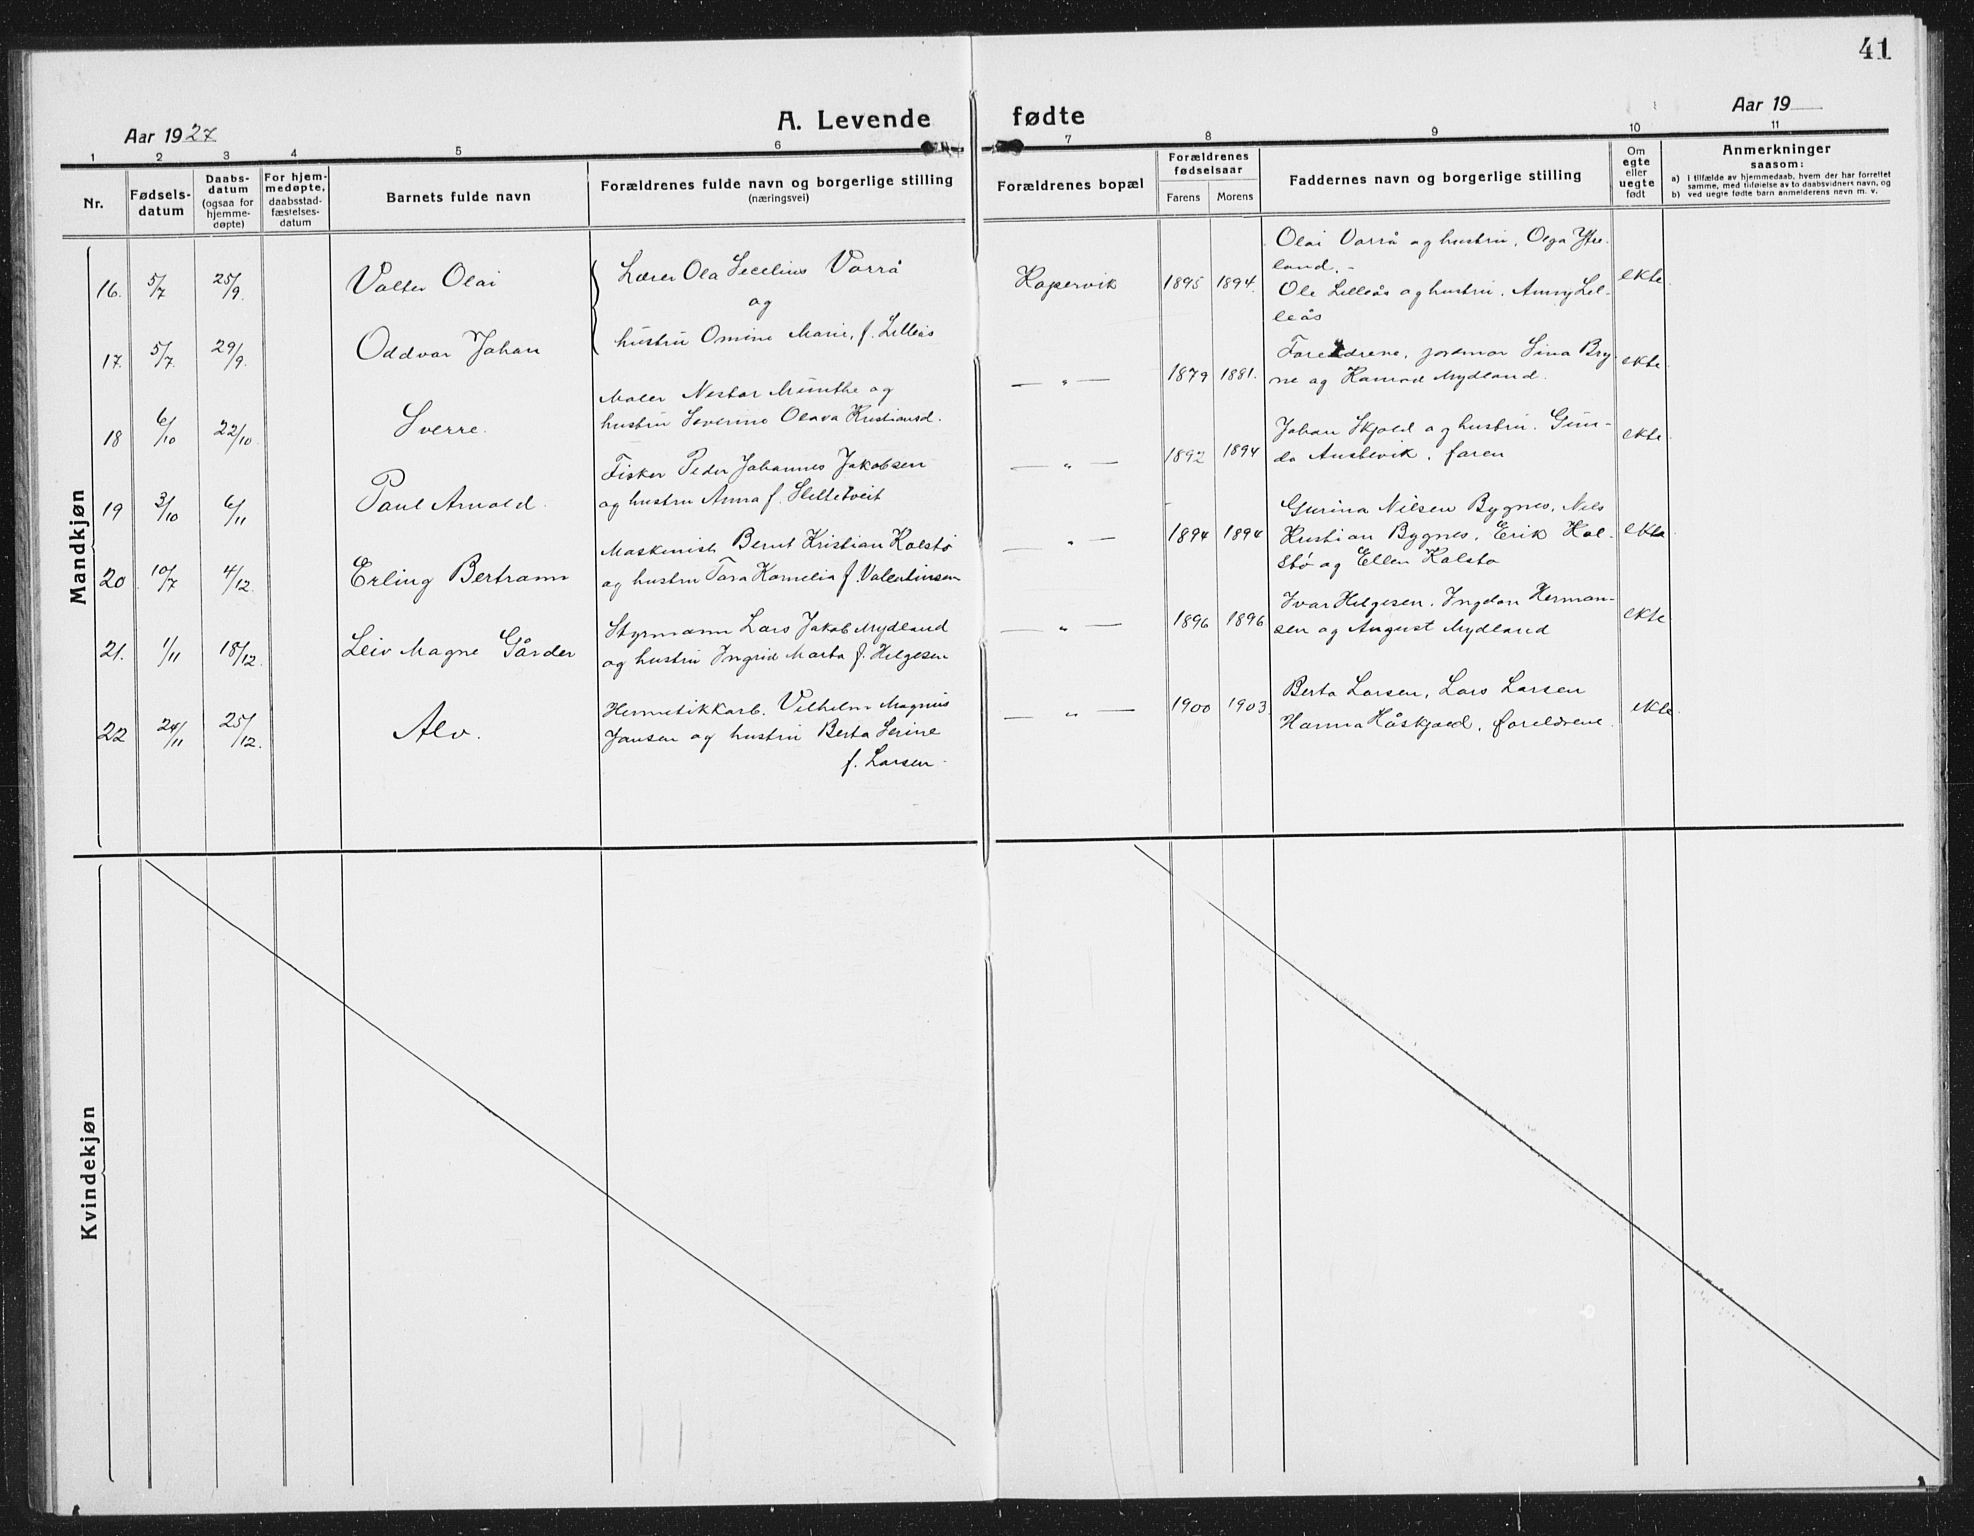 41
Aar 1927
A. Levende fødte
Aar 19
1 2 3 4 5 6 7 8 9 10 11
Nr.
Fødsels-
datum
Daabs-
datum
(ogsaa for
hjemme-
døpte)
For hjem-
medøpte,
daabsstad-
fæstelses-
datum
Barnets fulde navn
Forældrenes fulde navn og borgerlige stilling
(næringsvei)
Forældrenes bopæl
Forældrenes
fødselsaar
Farens Morens
Faddernes navn og borgerlige stilling
Om
egte
eller
uegte
født
Anmerkninger
saasom:
a) i tilfælde av hjemmedaab, hvem der har forrettet
samme, med tilføielse av to daabsvidners navn, og
b) ved uegte fødte barn anmelderens navn m. v.
Mandkjøn
16. 5/7 25/9. Valter Olai
Lærer Ola Secelius Varrå
og
hustru Omine Marie, f. Lilleås
Kopervik 1895 1894.
Olai Varrå og hustru, Olga Ytre-
land.-
Ole Lilleås og hustru, Anny Lil-
leås
ekte
17. 5/7. 29/9. Oddvar Johan
Maler Nestor Munthe og
hustru Severine Olava Kristiansd.
— " — 1879 1881.
Foreldrene, jordmor Sina Bry-
ne og Konrad Mydland.
ekte
18 6/10 22/10. Sverre.
Fisker Peder Johannes Jakobsen
og hustru Anna f. Sletteveit
— " — 1892 1894
Johan Skjold og hustru. Gun-
da Austevik, faren
ekte
19 3/10 6/11 Paul Arnold.
Maskinist Bernt Kristian Kolstø
og hustru Tora Kornelia f. Valentinsen
— " — 1894 1894
Gurina Nilsen Bygnes, Nils
Kristian Bygnes, Erik Kol-
stø og Ellen Kolstø
ekte
20 10/7 4/12. Erling Bertram
Styrmann Lars Jakob Mydland
og hustru Ingrid Marta f. Helgesen
— " — 1896 1896
Ivar Helgesen, Herman-
sen og August Mydland
ekte
21. 1/11 18/12. Leiv Magne Gårder
Hermetikkarb. Vilhelm Magnus
Jansen og hustru Berta Serine
f. Larsen.
— " — 1900 1903.
Berta Larsen, Lars Larsen
Hanna Håskjold, foreldrene.
ekte.
22 24/11 25/12. Alv.
Kvindekjøn